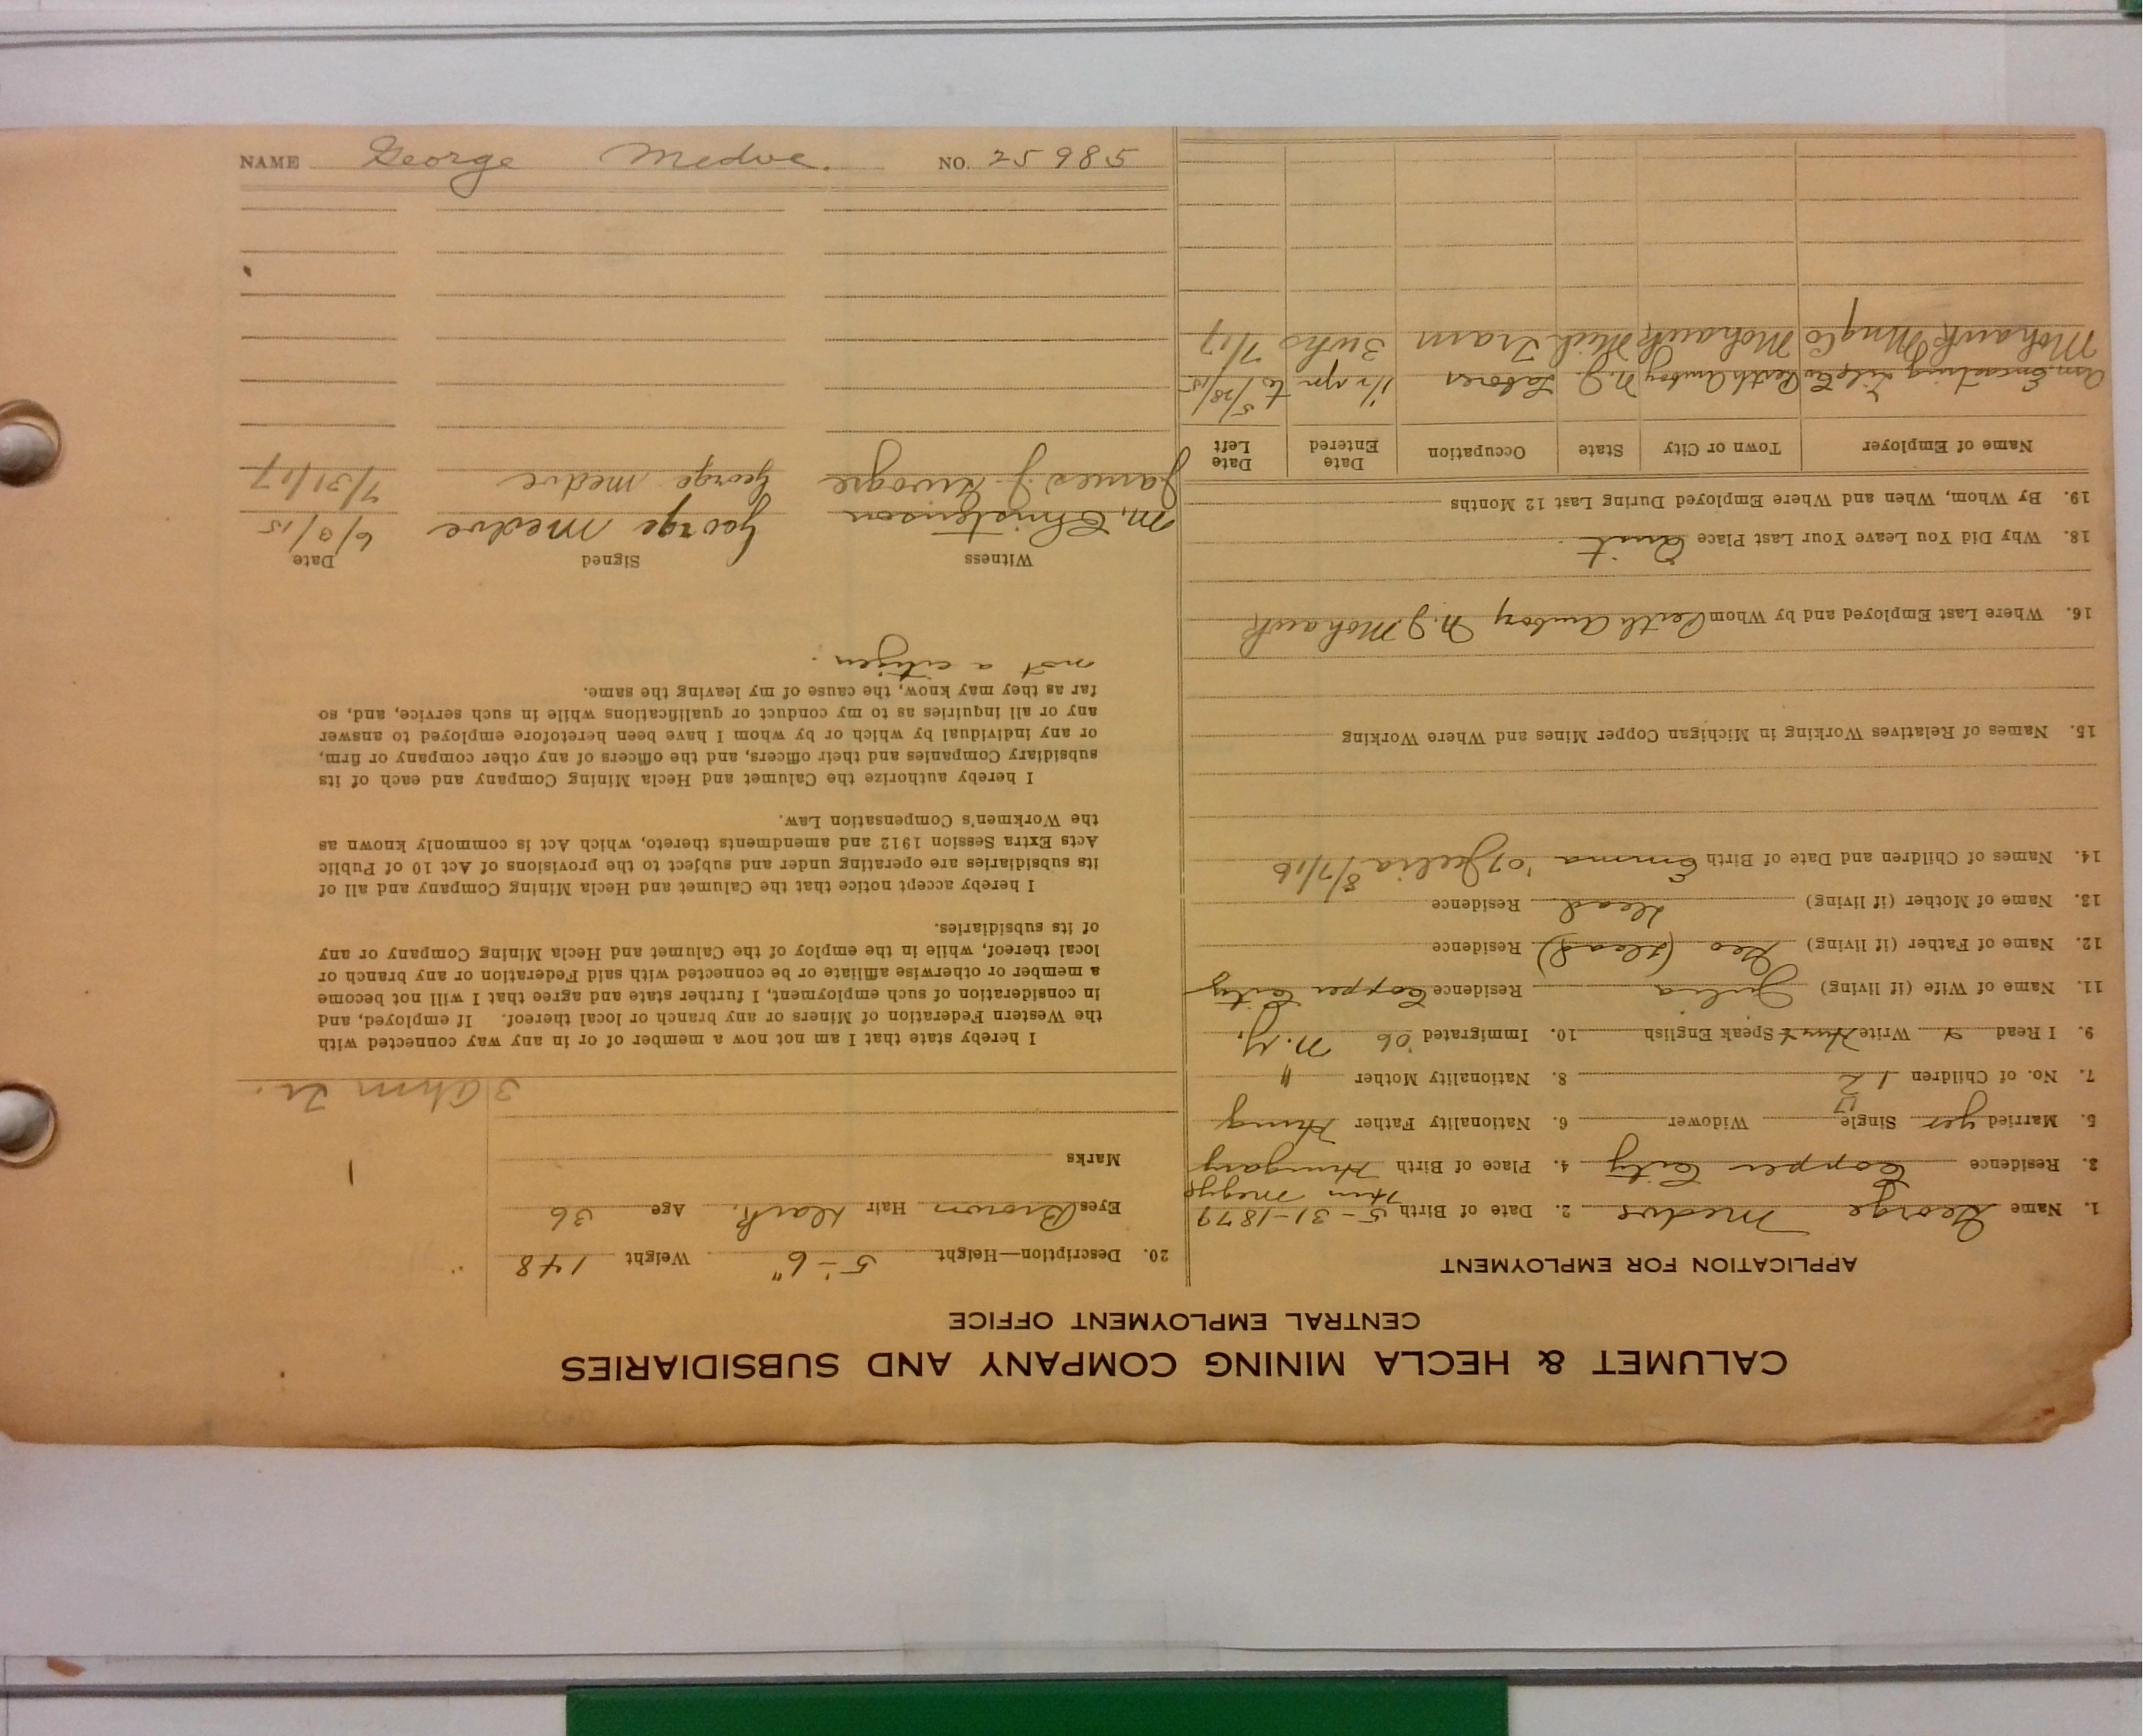 CALUMET & HECLA MINING COMPANY AND SUBSIDIARIES
CENTRAL EMPLOYMENT OFFICE
APPLICATION FOR EMPLOYMENT
1. Name George Medve 2. Date of Birth 5-31-1879
3. Residence Copper City 4. Place of Birth Hungary
5. Married yes Single Widower 6. Nationality Father Hung
7. No. of Children 1 2 8. Nationality Mother "
9. I Read Write Speak English 10. Immigrated '06 N.Y.
11. Name of Wife (if living) Julia Residence Copper City
12. Name of Father (if living) Geo (dead) Residence
13. Name of Mother (if living) dead Residence
14. Names of Children and Date of Birth Emma '07 Julia 8/7/16
15. Names of Relatives Working in Michigan Copper Mines and Where Working
16. Where Last Employed and by Whom Perth Amboy N.J Mohawk
18. Why Did You Leave Your Last Place Quit
19. By Whom, When and Where Employed During Last 12 Months
Name of Employer Town or City State Occupation Date Entered Date Left
Am. Tile Co Perth Amboy N.J. Laborer 1 1/2 yr to 5/28/15
Mohawk Mng Co Mohawk Mich Tram 3 wks 7/17
20. Description—Height 5'-6" Weight 148
Eyes Brown Hair dark Age 36
Marks
I hereby state that I am not now a member of or in any way connected with
the Western Federation of Miners or any branch or local thereof. If employed, and
in consideration of such employment, I further state and agree that I will not become
a member or otherwise affiliate or be connected with said Federation or any branch or
local thereof, while in the employ of the Calumet and Hecla Mining Company or any
of its subsidiaries.
I hereby accept notice that the Calumet and Hecla Mining Company and all of
its subsidiaries are operating under and subject to the provisions of Act 10 of Public
Acts Extra Session 1912 and amendments thereto, which Act is commonly known as
the Workmen's Compensation Law.
I hereby authorize the Calumet and Hecla Mining Company and each of its
subsidiary Companies and their officers, and the officers of any other company or firm,
or any individual by which or by whom I have been heretofore employed to answer
any or all inquiries as to my conduct or qualifications while in such service, and, so
far as they may know, the cause of my leaving the same.
not a citizen.
Witness Signed Date
M. Christenson George Medve 6/3/15
James J. George medve 7/31/17
NAME George Medve. NO. 25985